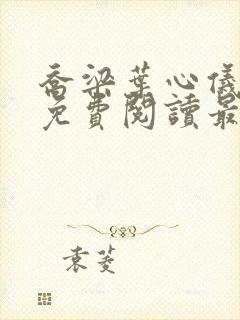 喬梁葉心儀
免費閱讀最
袁菱